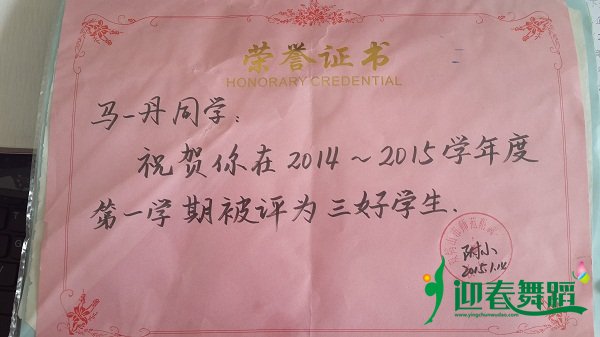 荣誉证书
HONORARY CREDENTIAL
马一丹同学：
祝贺你在2014～2015学年度
第一学期被评为三好学生．
附小
2015.1.14
迎春舞蹈
www.yingchunwudao.com